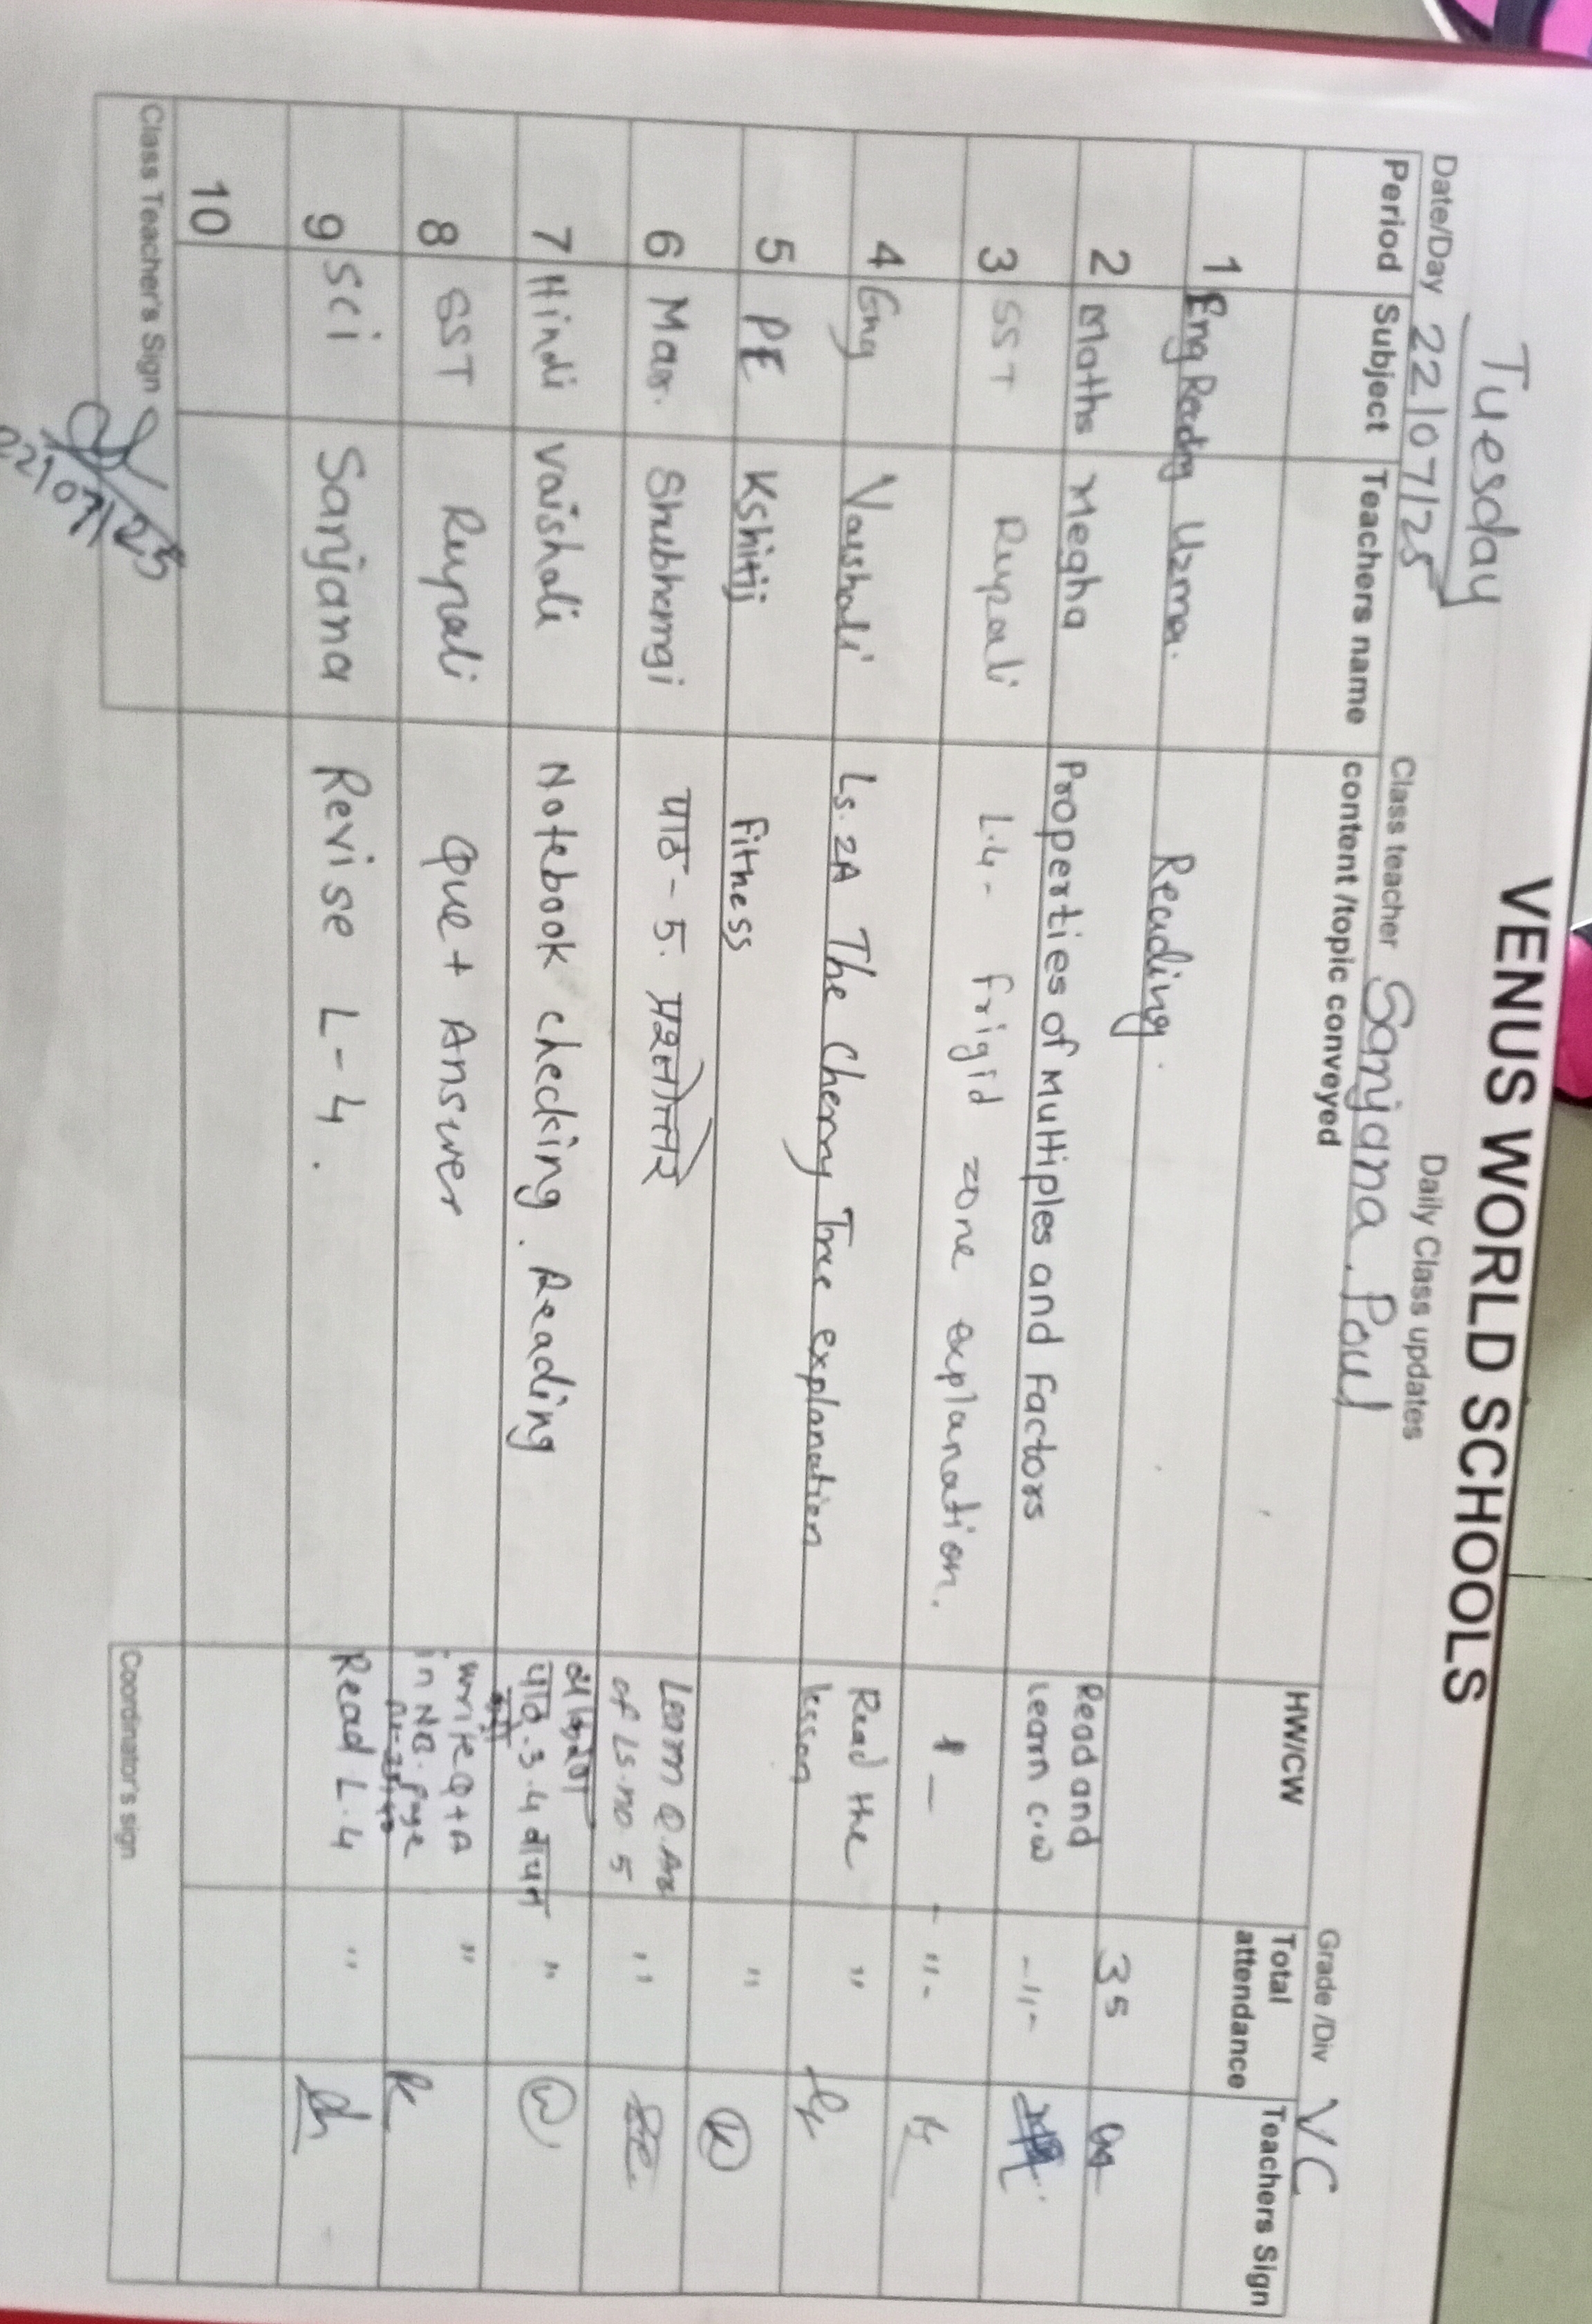 VENUS WORLD SCHOOLS
Daily Class updates
Tuesday
Date/Day 22/07/25 Class teacher Sanjana. Paul Grade /Div VC
Period Subject Teachers name content /topic conveyed HW/CW Total attendance Teachers Sign
1 Eng Reading Uzma. Reading. 35
2 Maths Megha Properties of Multiples and Factors Read and Learn c.w -"-
3 SST Rupali L.4 - frigid zone explanation. - -"-
4 Eng Vaishali Ls. 2A The Cherry Tree explanation Read the lesson "
5 PE Kshitij Fitness "
6 Mar. Shubhangi पाठ - 5. प्रश्नोत्तरे Learn Q. Ans of Ls. no. 5 "
7 Hindi Vaishali Notebook checking. Reading पाठ. 3. 4 "
8 SST Rupali Que + Answer write Q+A in NB. page "
9 Sci Sanjana Revise L-4. Read L.4 "
10
Class Teacher's Sign 22/07/25 Coordinator's sign